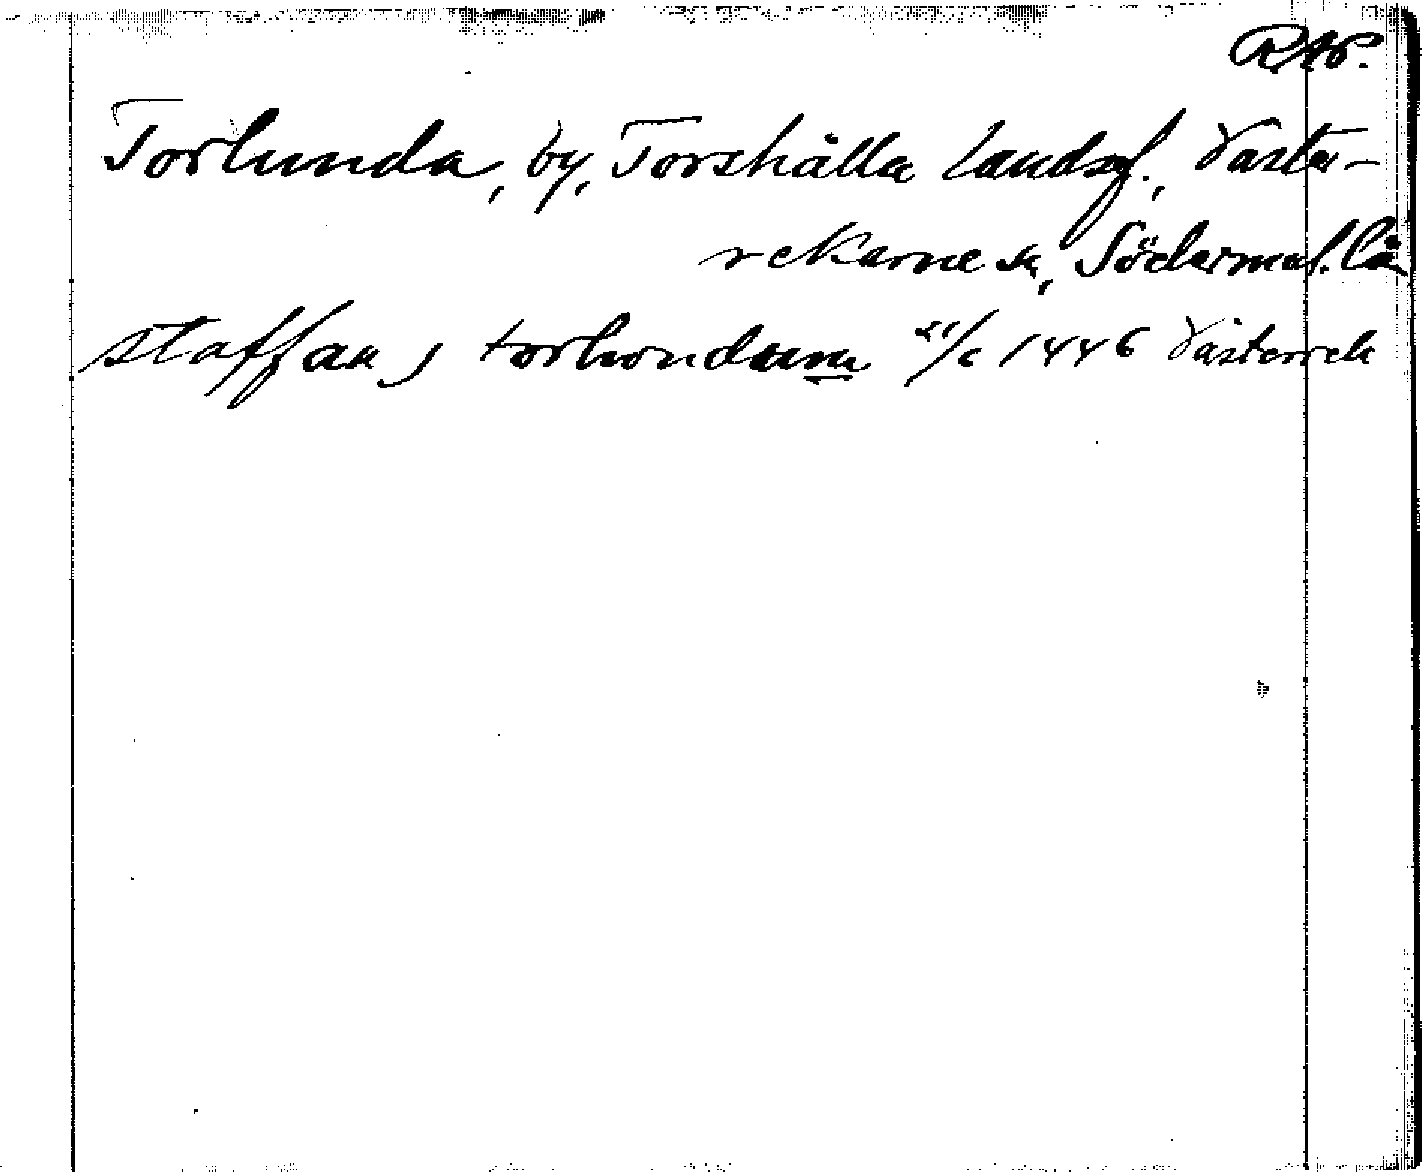 RAP.
Torlunda, by, Torshälla landsf., Väster-
rekarne sn, Södermal. län
staffan j torlwndum 21/6 1446 Västerrek